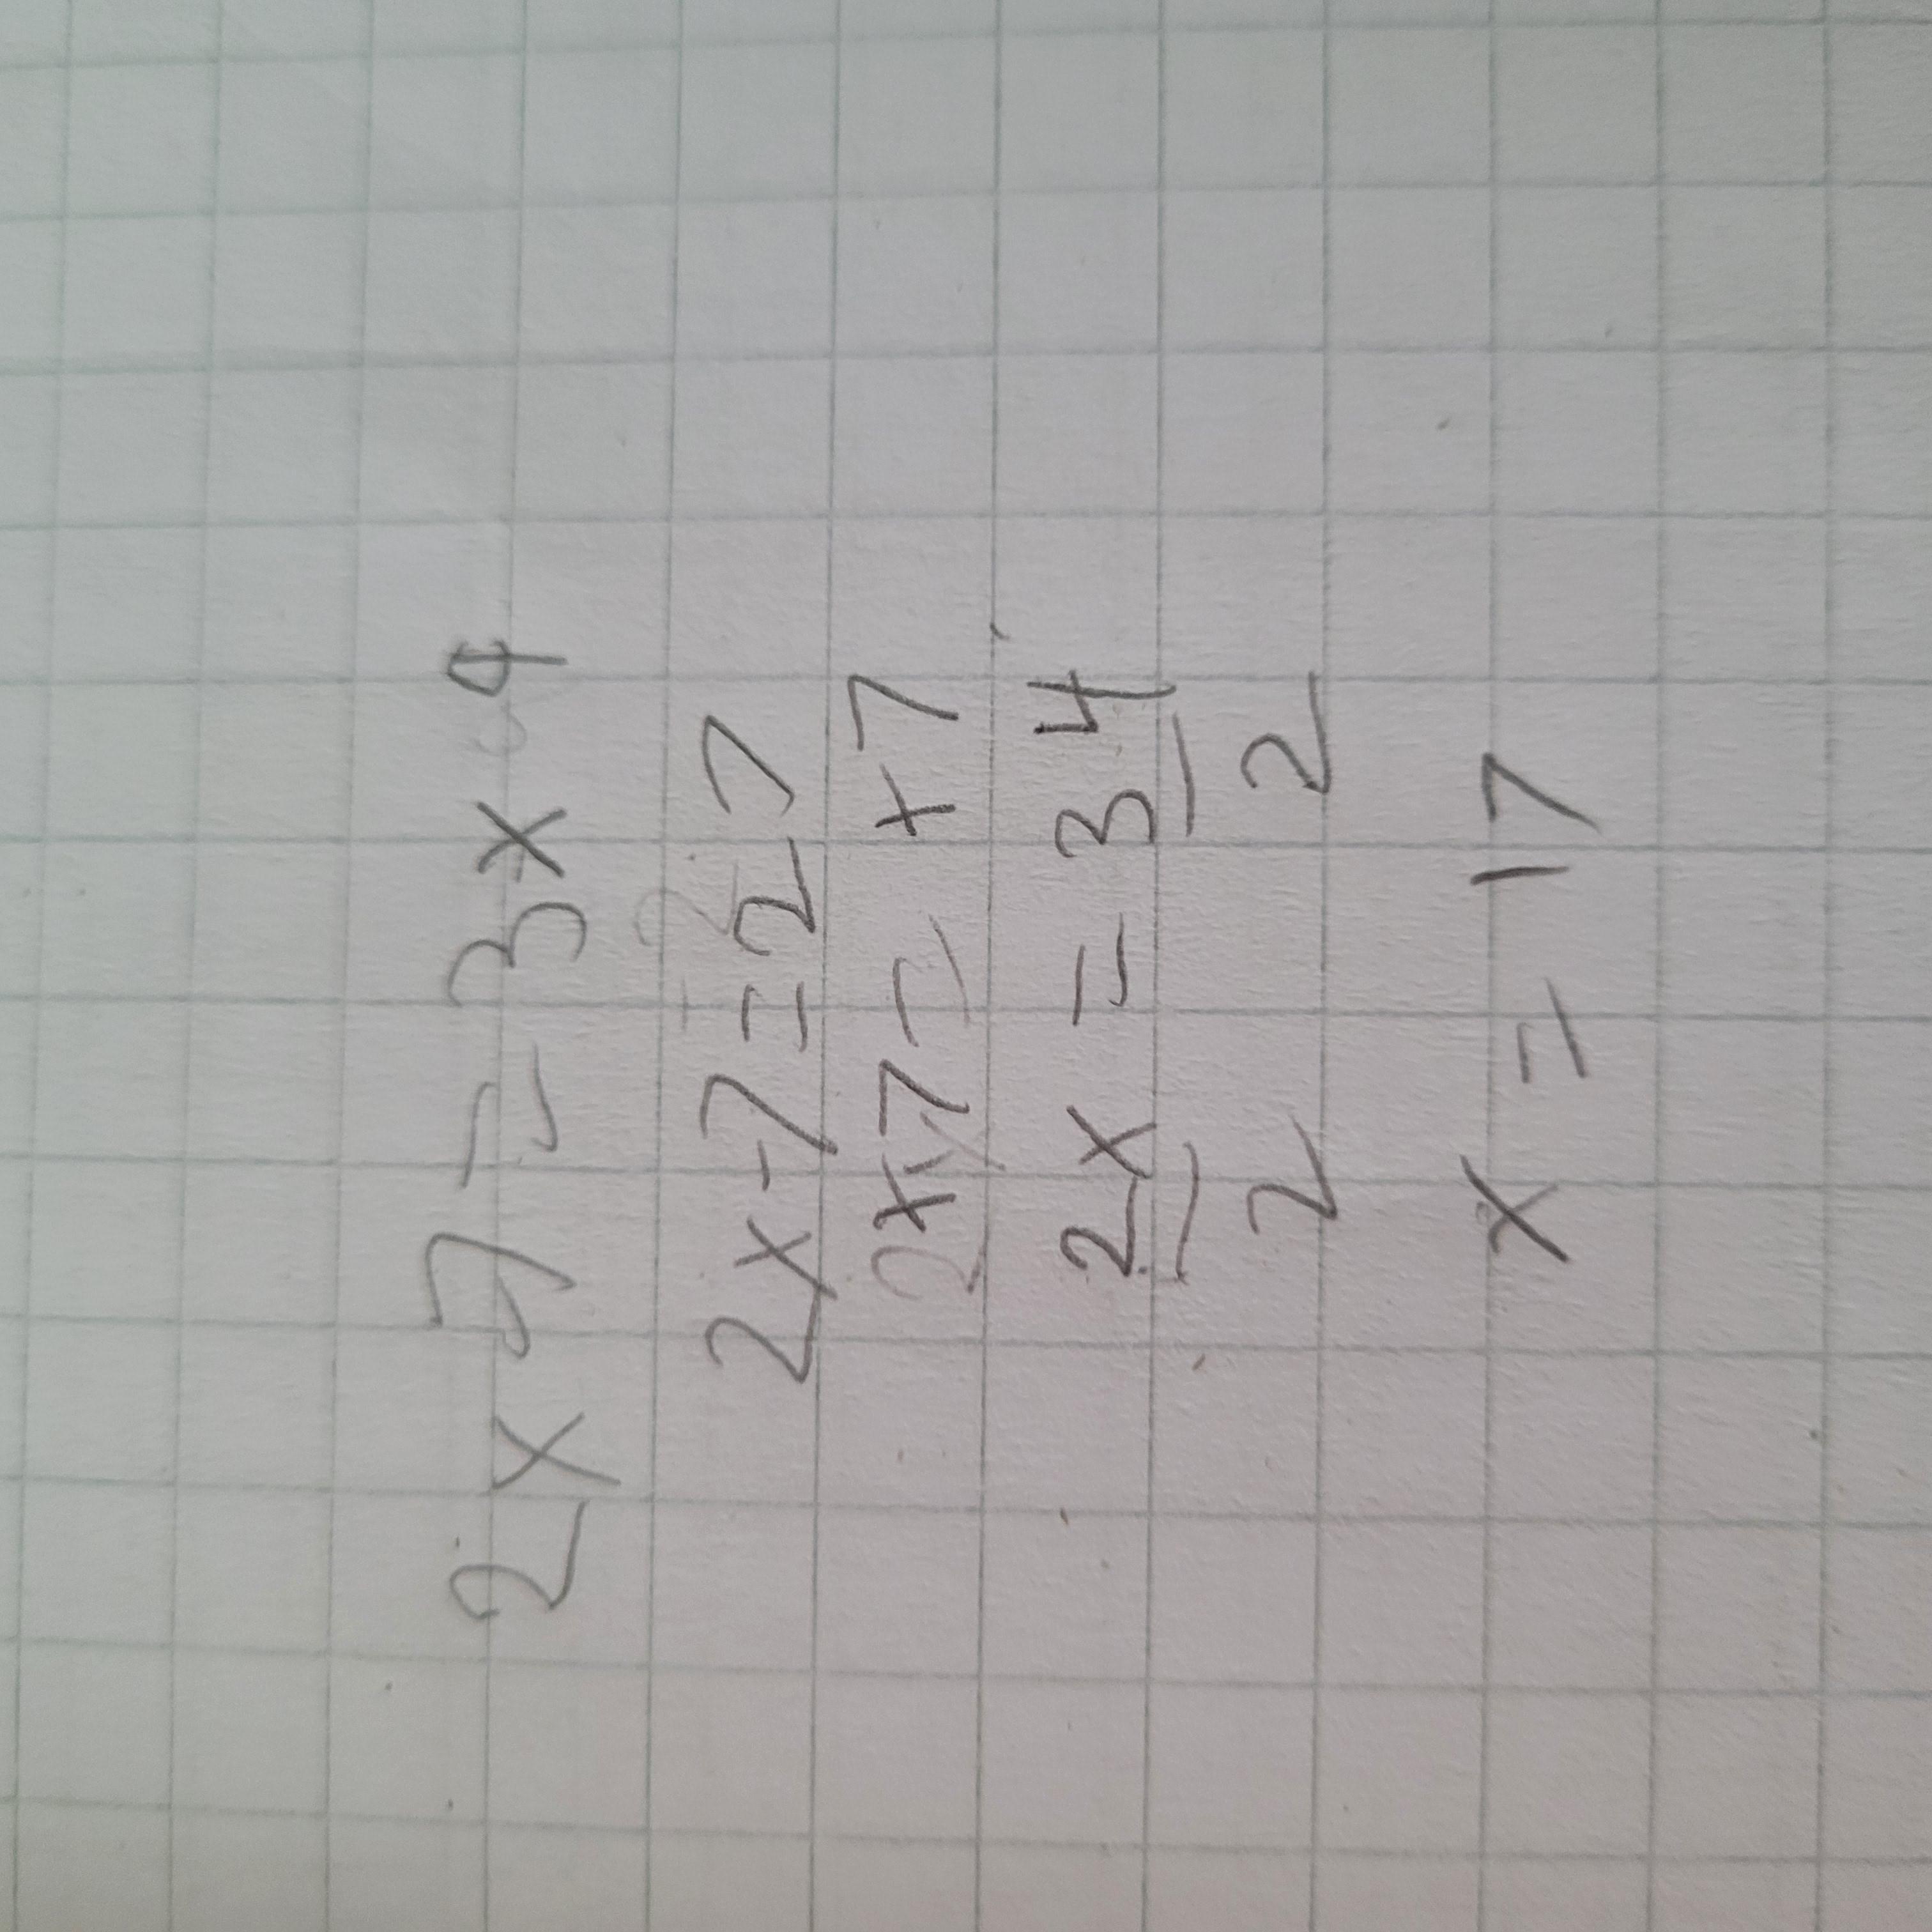 2x 7 = 3x 9
2x-7=27
2x+7= +7
2x = 34
2 2
x = 17